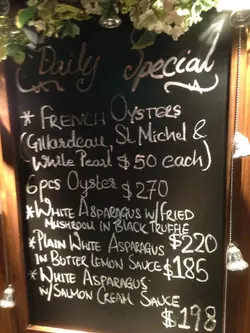 Daily Special
* FRENCH OYSTERS
(Gillardeau, St Michel &
White Pearl $50 each)
6pcs OYSTER $270
* WHITE ASPARAGUS W/FRIED
MUSHROOM IN BLACK TRUFFLE
$220
* PLAIN WHITE ASPARAGUS
IN BUTTER LEMON SAUCE $185
* WHITE ASPARAGUS
W/SALMON CREAM SAUCE
$198